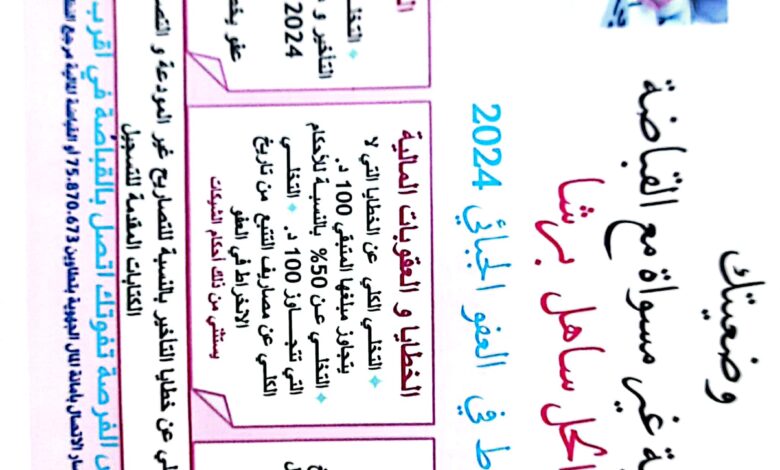 وضعيتك
غير مسواة مع القباضة
الحل ساهل برشا
في العفو الجبائي 2024
التأخير و
2024
الخطايا و العقوبات المالية
التخلي الكلي عن الخطايا التي لا
يتجاوز مبلغها المتبقي 100 د.
التخلي عن 50% بالنسبة للأحكام
التي تتجاوز 100 د. التخلي
الكلي عن مصاريف التتبع من تاريخ
الانخراط في العفو
يستثنى من ذلك أحكام الشيكات
عن خطايا التأخير بالنسبة للتصاريح غير المودعة و
الكتابات المقدمة للتسجيل
الفرصة تفوتك اتصل بالقباضة في أقرب
الاتصال بأمانة المال الجهوية بتطاوين 75.870.673 أو القباضة المالية مرجع